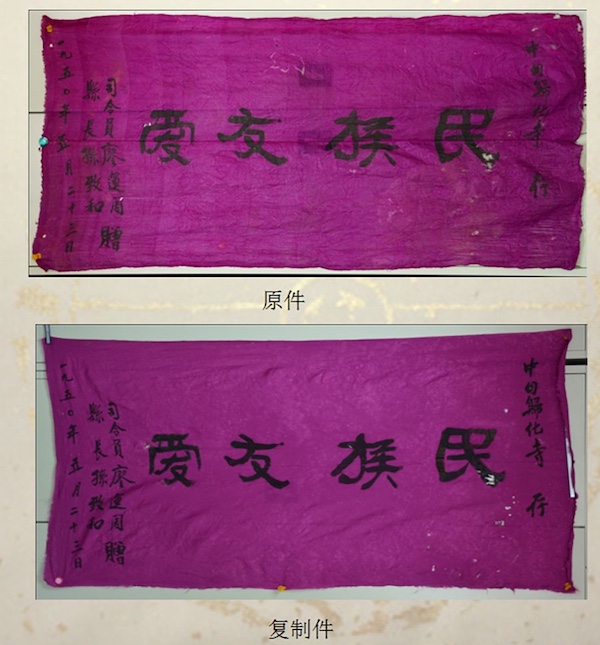 中甸歸化寺
民族友愛
司令員廖運周 贈
縣長孫致和
一九五〇年五月二十三日
原件
中甸歸化寺
民族友愛
司令員廖運周 贈
縣長孫致和
一九五〇年五月二十三日
复制件